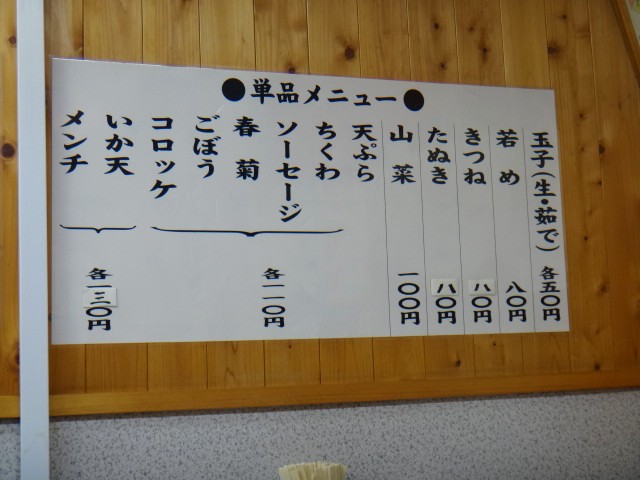 ●単品メニュー●
玉子(生・茹で) 各五〇円
若め 八〇円
きつね 八〇円
たぬき 八〇円
山菜 一〇〇円
天ぷら
ちくわ
ソーセージ
春菊
ごぼう
コロッケ
各一一〇円
いか天
メンチ
各一三〇円